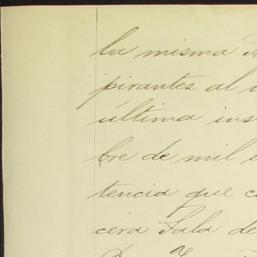 la misma
pirantes al
última ins
bre de mil
tencia que c
cera Sala de